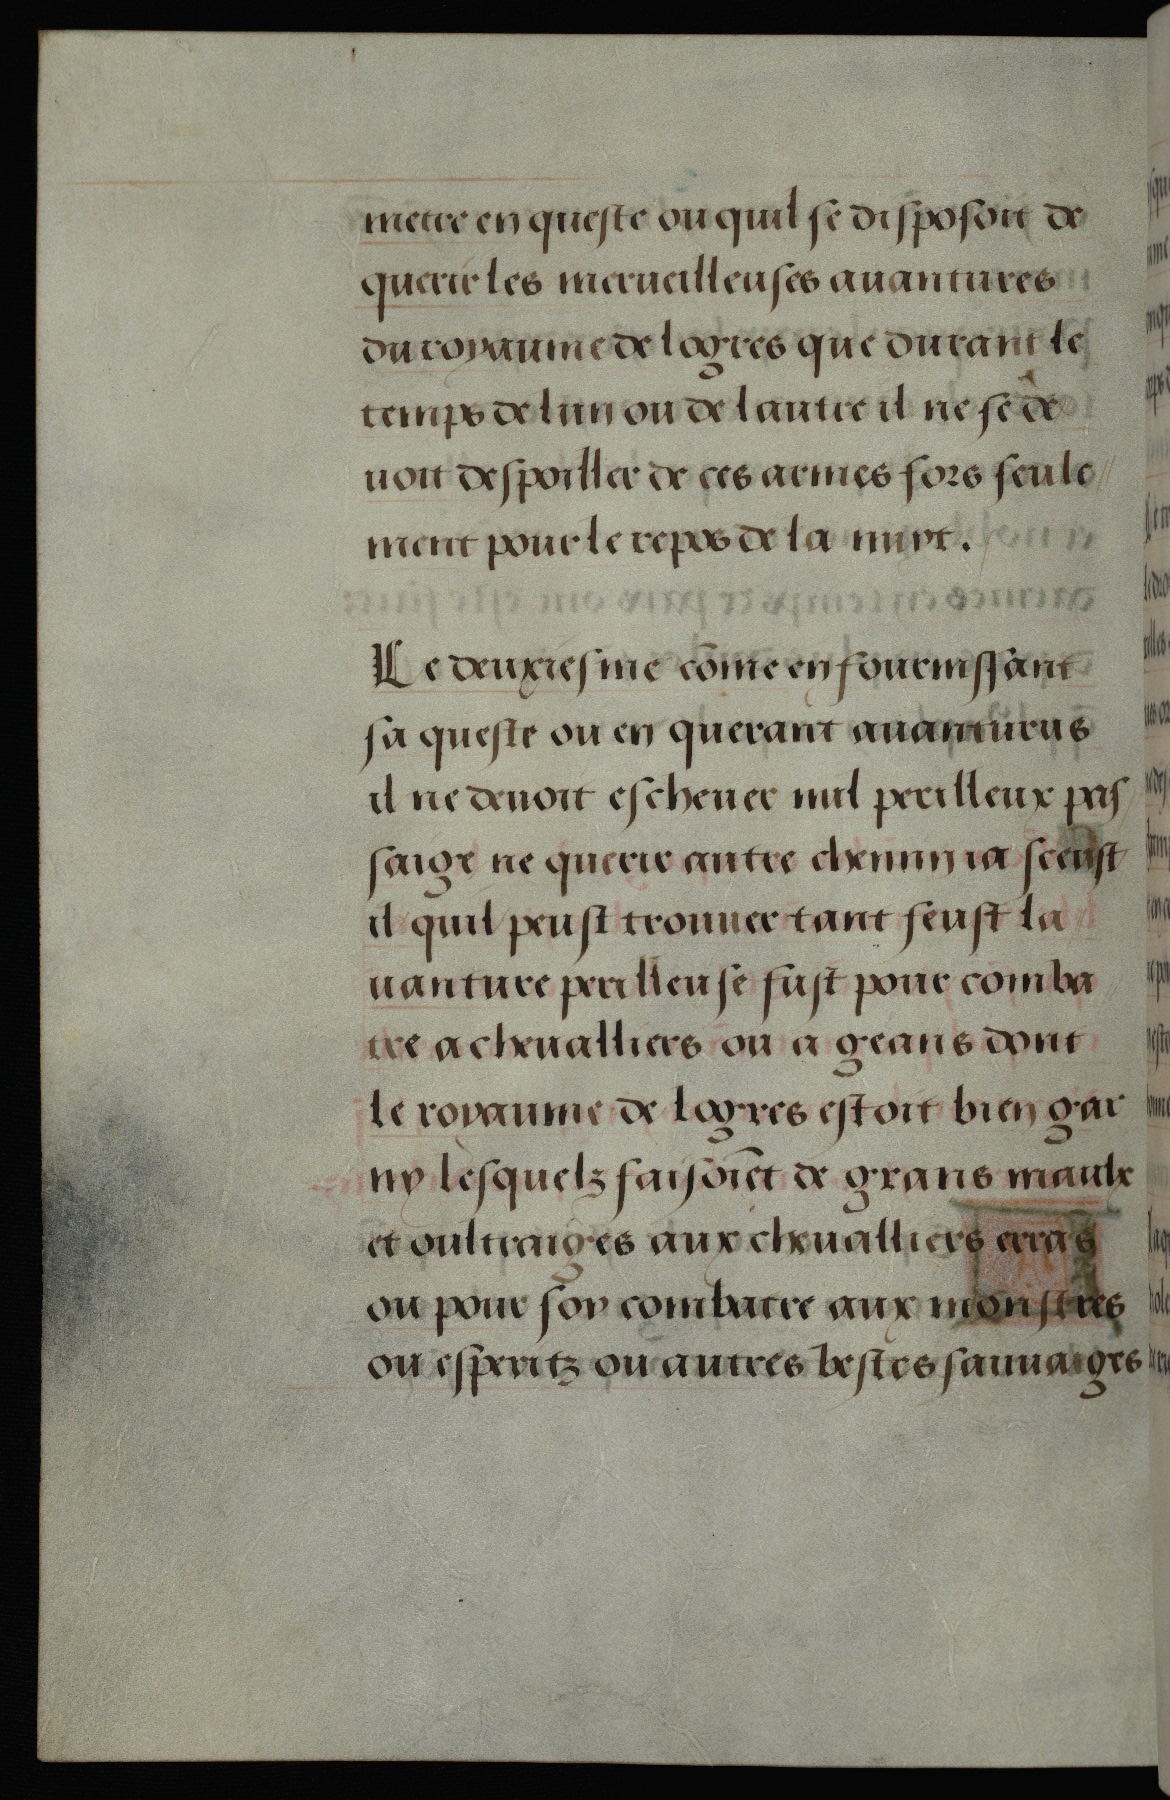 mettre en queste ou quil se disposoit de
querir les merueilleuses auantures
du royaume de logres que durant le
temps de lun ou de lautre il ne se de
uoit despoiller de ces armes fors seule//
ment pour le repos de la nuyt.
Le deuxiesme cõme en fournissant
sa queste ou en querant auanturus
il ne deuoit escheuer nul perilleux pas
saige ne querir autre chemin ia sceust
il quil peust trouuer tant feust la
uanture perilleuse fust pour comba
tre a cheualliers ou a geans dont
le royaume de logres estoit bien gar
ny lesquelz faisoiẽt de grans maulx
et oultraiges aux cheualliers erras
ou pour soy combatre aux monstres
ou esperitz ou autres bestes sauuaiges